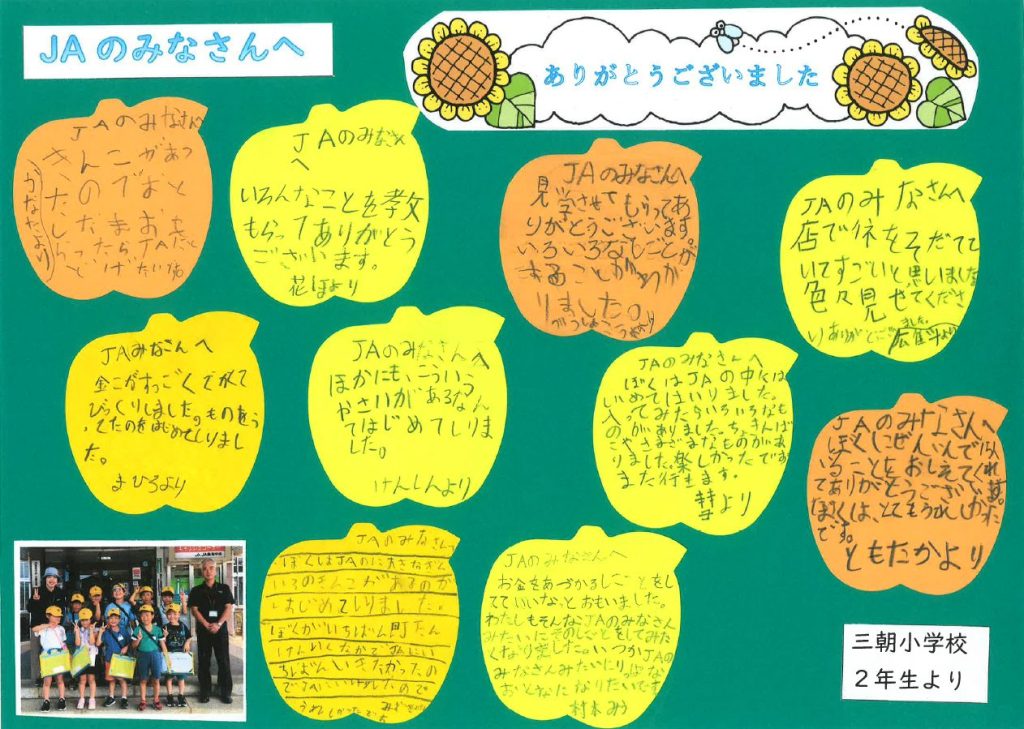 JAのみなさんへ
ありがとうございました
JAのみなさんへ
きんこがあっ
JAのみなさん
へ
いろんなことを教
もらってありがとう
ございます。
花ほより
JAのみなさんへ
見学させてもらってあ
りがとうございます。
いろいろなしごとが
あることがわか
りました。
JAのみなさんへ
店で休をそだてて
いてすごいと思いました
色々見せてくださ
りありがとうござ
ました。
JAみなさんへ
金こがすっごくでかくて
びっくりしました。ものをう
ってたのをはじめてしりまし
た。
まひろより
JAのみなさんへ
ほかにも、こういう
やさいがあるなん
てはじめてしりま
した。
けんしんより
JAのみなさんへ
ぼくはJAの中には
じめてはいりました。
入ってみたらいろいろなも
のがありました。ちょきんば
こやさまざまなものがあ
りました。楽しかったです
また行きます。
より
JAのみなさんへ
ぼくにぜんいんでいろ
いろことをおしえてくれ
てありがとうございます。
ぼくは、とてもうれしかった
です。
ともたかより
JAのみなさんへ
ぼくはJAのに大きなかん
いろのきんこがあるのが
はじめてしりました。
ぼくがいちばん町たん
けんいくなかで
ちばんいきたかったの
うれしかったです
JAのみなさんへ
お金をあづかるしごとをし
てていいなっとおもいました。
わたしもそんなJAのみなさん
みたいにそのしごとをしてみた
くなりました。いつかJAの
みなさんみたいにりっぱな
おとなになりたいです
村本みう
三朝小学校
2年生より